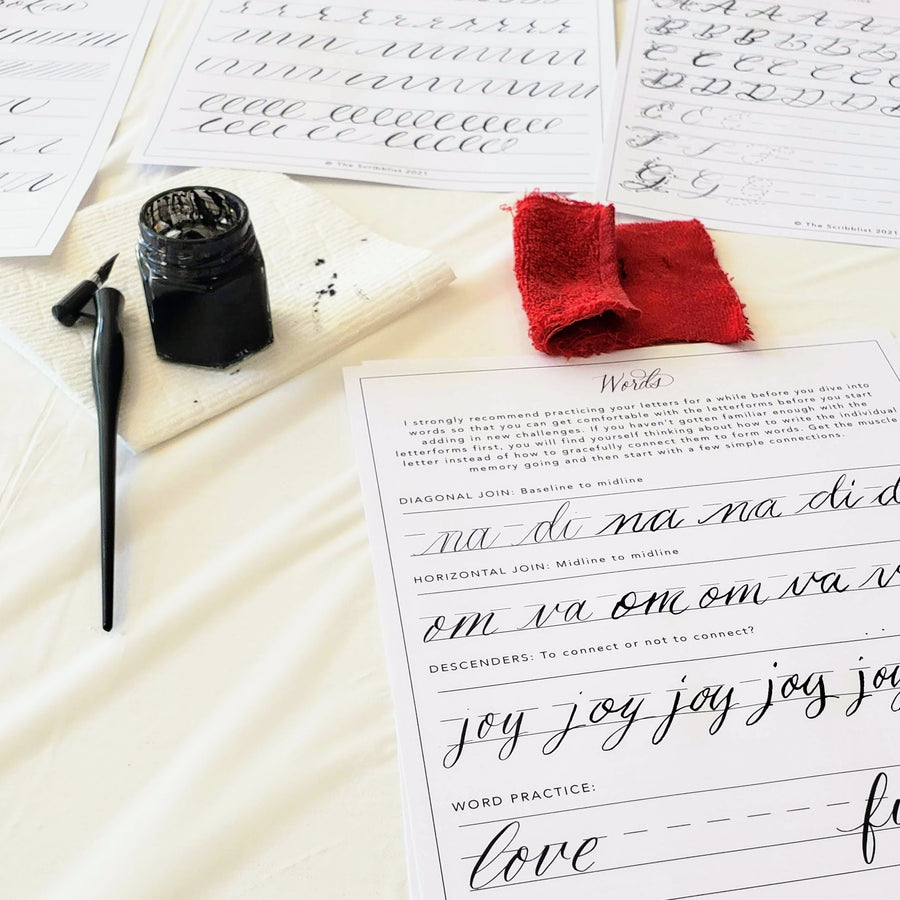 rrrrrrrrr
© The Scribblist 2021
A A A A A
B B B B B B
C C C C C C
D D D D D D D
E E E
F F F
G G G
© The Scribblist 2021
Words
I strongly recommend practicing your letters for a while before you dive into
words so that you can get comfortable with the letterforms before you start
adding in new challenges. If you haven't gotten familiar enough with the
letterforms first, you will find yourself thinking about how to write the individual
letter instead of how to gracefully connect them to form words. Get the muscle
memory going and then start with a few simple connections.
DIAGONAL JOIN: Baseline to midline
na di na na di d
HORIZONTAL JOIN: Midline to midline
om va om om va v
DESCENDERS: To connect or not to connect?
joy joy joy joy joy
WORD PRACTICE:
love fu